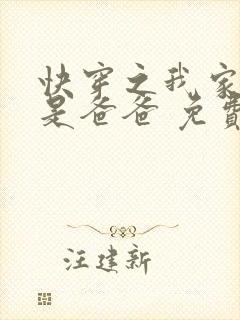 快穿之我家
是爸爸 免费
汪建新